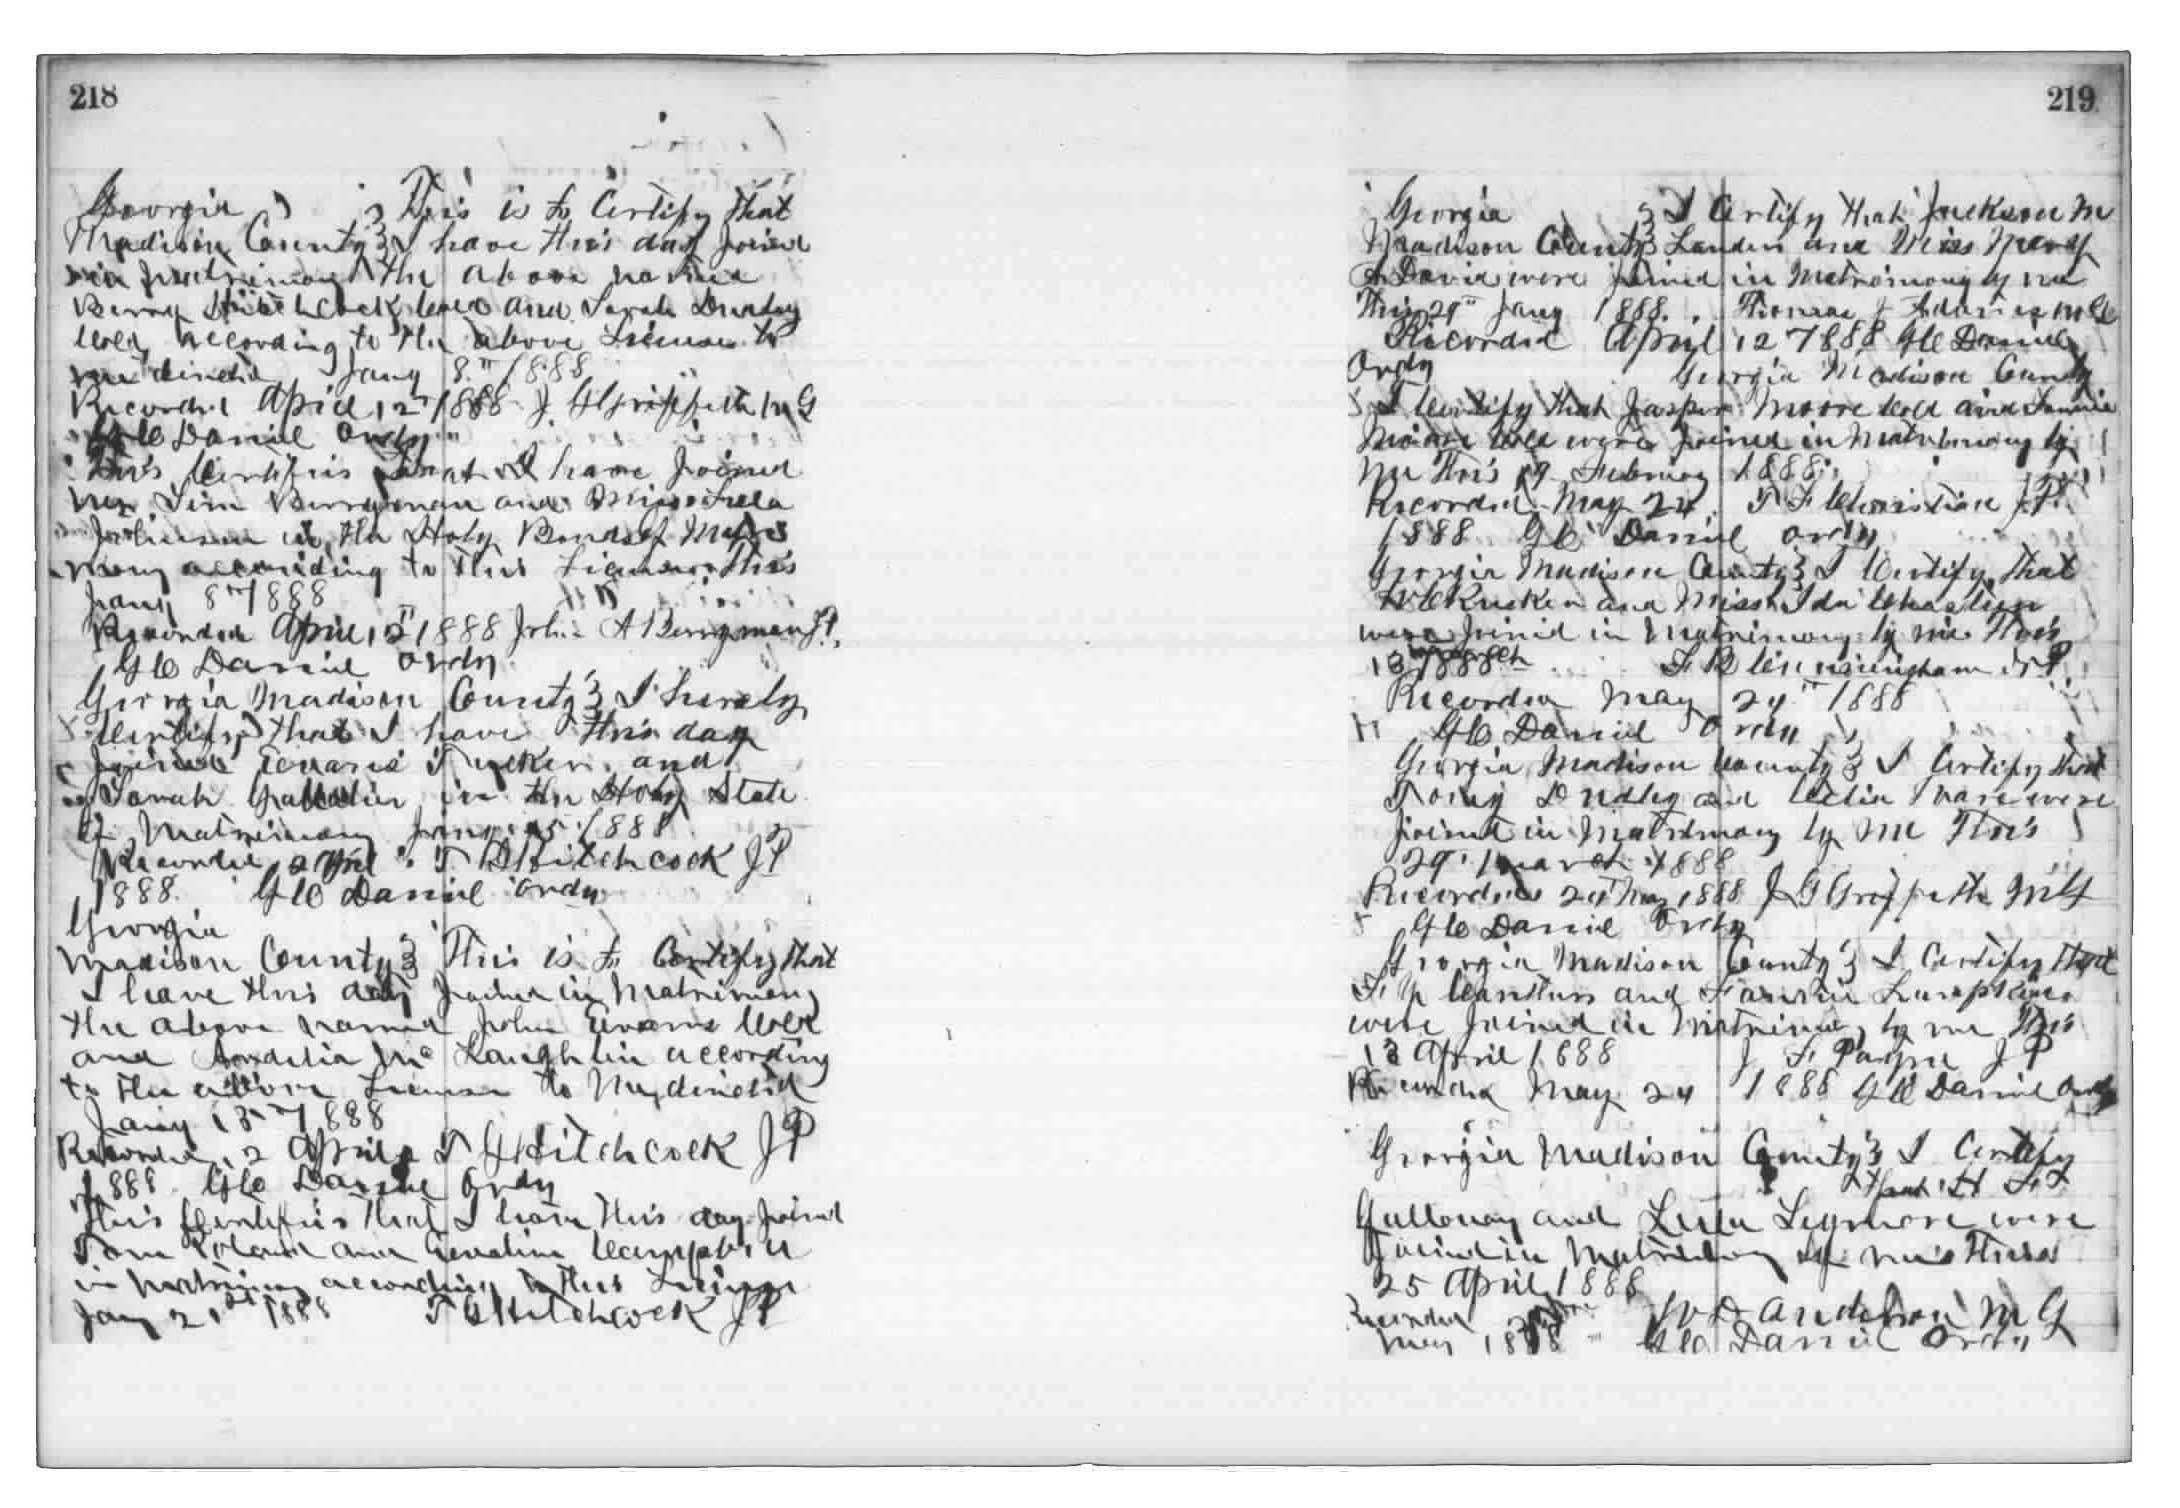 218
Georgia } This is to Certify that
Madison County } I have this day joined
in matrimony the above named
Berry Hitchcock Cold and Sarah Dudley
Cold, according to the above License to
me directed Jany 8th 1888
Recorded April 12th 1888 J. G Griffeth M G
G C Daniel Ordy
This Certifies that I have joined
Mr. Jim Berryman and Miss Lula
Johnson in the Holy Bonds of Matri
mony according to this License this
Jany 8th 1888
Recorded April 12th 1888 John A Berryman J.P.
G C Daniel Ordy
Georgia Madison County } I hereby
Certify that I have this day
Joined Tucker and
Sarah in the Holy State
of Matrimony Jany 15 1888
Recorded 2 April T D Hitchcock J P
1888. G C Daniel Ordy
Georgia
Madison County } This is to Certify that
I have this day joined in Matrimony
the above named John Evans Cold
and McLaughlin according
to the above License to me directed
Jany 15th 1888
Recorded 2 April T G Hitchcock J P
1888 G C Daniel Ordy
This Certifies that I have this day joined
Tom and
in matrimony according to this License
Jany 21st 1888 T G Hitchcock J P
219
Georgia } I Certify that Jackson M
Madison County } Landers and Miss Mandy
A David were joined in Matrimony by me
This 29th Jany 1888. Thomas J Adams
Recorded April 12th 1888 G C Daniel
Ordy Georgia Madison County
I Certify that Jasper Moore Cold and Fannie
Moore Cold were joined in Matrimony by
me This 19 February 1888
Recorded May 24 T F Christian J.P.
1888 G C Daniel Ordy
Georgia Madison County } I Certify that
and Miss Ida
were joined in Matrimony by me This
13 March 1888 F. B Cunningham N.P.
Recorded May 24th 1888
G C Daniel Ordy
Georgia Madison County } I Certify that
Tony Dudley and Ware were
joined in Matrimony by me This
29 March 1888
Recorded 24 May 1888 J G Griffeth M G
G C Daniel Ordy
Georgia Madison County } I Certify that
and Fannie Lumpkin
were joined in Matrimony by me This
13 April 1888 J F. Payne J P
Recorded May 24 1888 G C Daniel Ordy
Georgia Madison County } I Certify
that H
Galloway and Lula Seymore were
joined in Matrimony by me This
25 April 1888
Recorded W D Anderson M G
May 1888 G C Daniel Ordy